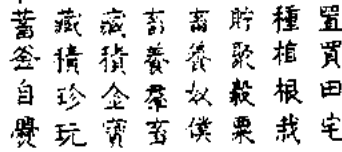 置買田宅
種植根栽
貯聚穀粟
畜養奴僕
畜養羣畜
藏積金寶
藏積珍玩
蓄釜自爨